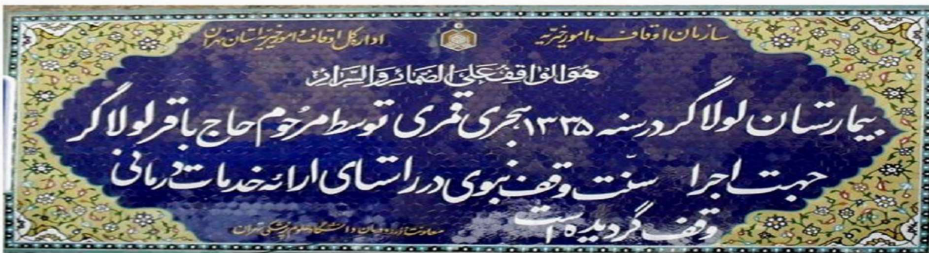 سازمان اوقاف و امور خیریه
اداره کل اوقاف و امور خیریه استان تهران
هو الواقف علی الضمائر و السرائر
بیمارستان لولاگر در سنه ۱۳۳۵ هجری قمری توسط مرحوم حاج باقر لولاگر
جهت اجرا سنّت وقف نبوی در راستای ارائه خدمات درمانی
وقف گردیده است
معاونت غذا و درمان دانشگاه علوم پزشکی تهران